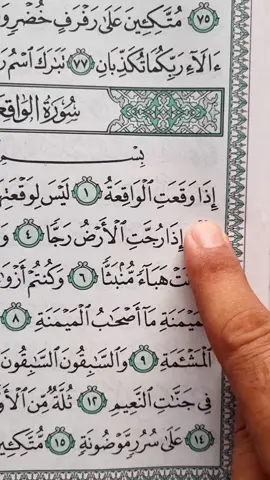 ٧٥ مُتَّكِـِٔينَ عَلَىٰ رَفْرَفٍ خُضْرٍ
ءَالَآءِ رَبِّكُمَا تُكَذِّبَانِ ٧٧ تَبَٰرَكَ ٱسْمُ
سُورَةُ الوَاقِعَة
بِسْمِ
إِذَا وَقَعَتِ ٱلْوَاقِعَةُ ١ لَيْسَ لِوَقْعَتِهَا
إِذَا رُجَّتِ ٱلْأَرْضُ رَجًّا ٤
هَبَآءً مُّنۢبَثًّا ٦ وَكُنتُمْ
مَآ أَصْحَٰبُ ٱلْمَيْمَنَةِ ٨
ٱلْمَشْـَٔمَةِ ٩ وَٱلسَّٰبِقُونَ ٱلسَّٰبِقُونَ
فِى جَنَّٰتِ ٱلنَّعِيمِ ١٢ ثُلَّةٌ مِّنَ
١٤ عَلَىٰ سُرُرٍ مَّوْضُونَةٍ ١٥